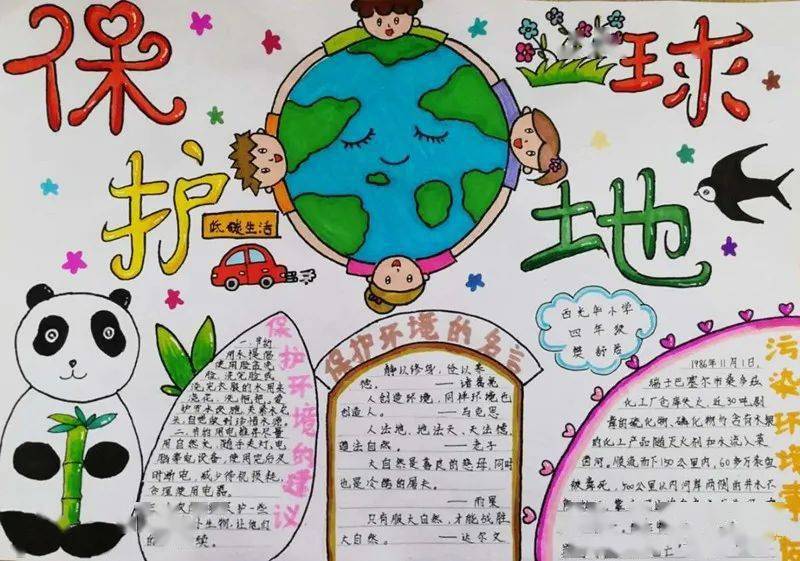 保护地球
低碳生活
西光华小学
四年级
保护环境的建议
一.节约
用水提倡
使用脸盆洗
脸、洗完脸或
洗完衣服的水用来
浇花、洗拖把、
我们用电尽量
用自然光，随手关灯，电
脑等电设备，使用完后及
时断电，减少待机损耗，
合理使用电器。
保护一些
生物，让他们
续。
保护环境的名言
静以修身，俭以养
德。 ——诸葛亮
人创造环境，同样环境也
创造人。 ——马克思
人法地、地法天、天法道、
道法自然。 ——老子
大自然是善良的慈母，同时
也是冷酷的屠夫。
——雨果
只有顺大自然，才能战胜
大自然。 ——达尔文
污染环境事
1986年11月1日，
瑞士巴塞尔市桑多兹
化工厂仓库失火，近30吨剧
毒的硫化物、磷化物与含有水银
的化工产品随灭火剂和水流入莱
茵河。顺流而下150公里内，60多万条鱼
被毒死，500公里以内河岸两侧的井水不